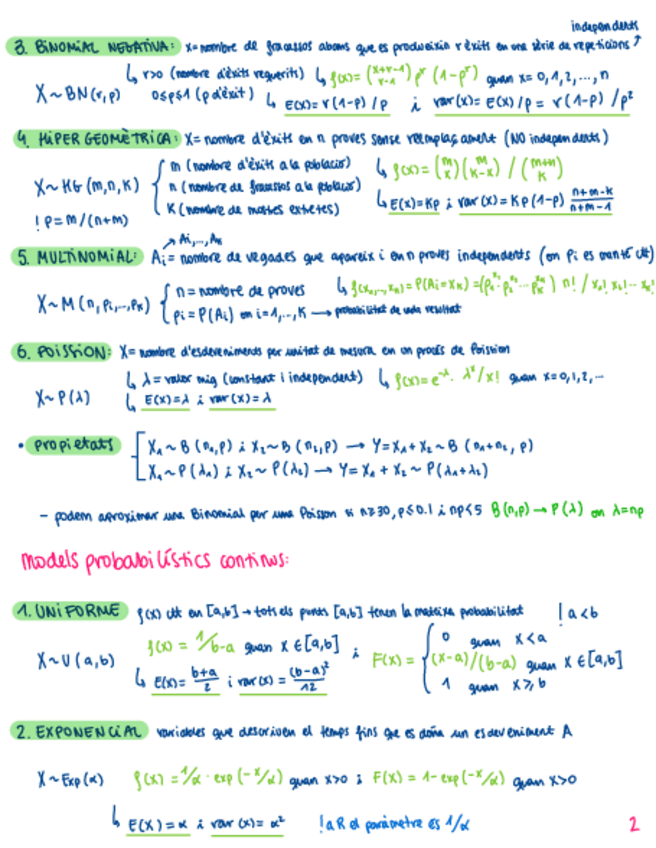 independents
3. BINOMIAL NEGATIVA: X=nombre de fracassos abans que es produeixin r èxits en una sèrie de repeticions ↗
↳ r>0 (nombre d'èxits requerits) ↳ f(x) = (x+r-1 x) p^r (1-p^r) quan x= 0,1,2,...,n
X~BN(r,p) 0≤p≤1 (p d'èxit) ↳ E(X)= r(1-p)/p i var(X)= E(X)/p = r(1-p)/p²
4. HIPERGEOMÈTRICA: X= nombre d'èxits en n proves sense reemplaçament (NO independents)
m (nombre d'èxits a la població) ↳ f(x) = (m x)(m k-x) / (m+n k)
X~HG(m,n,K) n (nombre de fracassos a la població)
! p=m/(n+m) K (nombre de mostres extretes) ↳ E(X)=Kp i var(X)= Kp(1-p) n+m-k / n+m-1
↗ A1,...,AK
5. MULTINOMIAL: Ai= nombre de vegades que apareix i en n proves independents (on Pi es manté ctt)
n= nombre de proves ↳ f(x1,...,xn)= P(Ai=XK) =(p1^x1 · p2^x2 ... pK^xK) n! / x1! x2! ... xK!
X~M(n,P1,...,PK) pi= P(Ai) on i=1,...,K → probabilitat de cada resultat
6. POISSION: X= nombre d'esdeveniments per unitat de mesura en un procés de Poission
↳ λ= valor mig (constant i independent) ↳ f(x)= e^-λ · λ^x/x! quan x=0,1,2,...
X~P(λ) ↳ E(X)=λ i var(X)=λ
• propietats X1~B(n1,p) i X2~B(n2,p) → Y=X1+X2~B(n1+n2, p)
X1~P(λ1) i X2~P(λ2) → Y= X1 + X2 ~ P(λ1+λ2)
- podem aproximar una Binomial per una Poisson si n≥30, p≤0.1 i np<5 B(n,p) → P(λ) on λ=np
Models probabilístics continus:
1. UNIFORME f(x) ctt en [a,b] → tots els punts [a,b] tenen la mateixa probabilitat ! a<b
f(x) = 1/b-a quan X ∈ [a,b] i F(x) = 0 quan X<a
X~U(a,b) (X-a)/(b-a) quan X ∈ [a,b]
↳ E(X)= b+a / 2 i var(X) = (b-a)² / 12 1 quan X≥b
2. EXPONENCIAL variables que descriuen el temps fins que es dóna un esdeveniment A
X~Exp(α) f(x) = 1/α · exp(-x/α) quan x>0 i F(x) = 1-exp(-x/α) quan x>0
↳ E(X)=α i var(X)= α² ! a R el paràmetre és 1/α
2